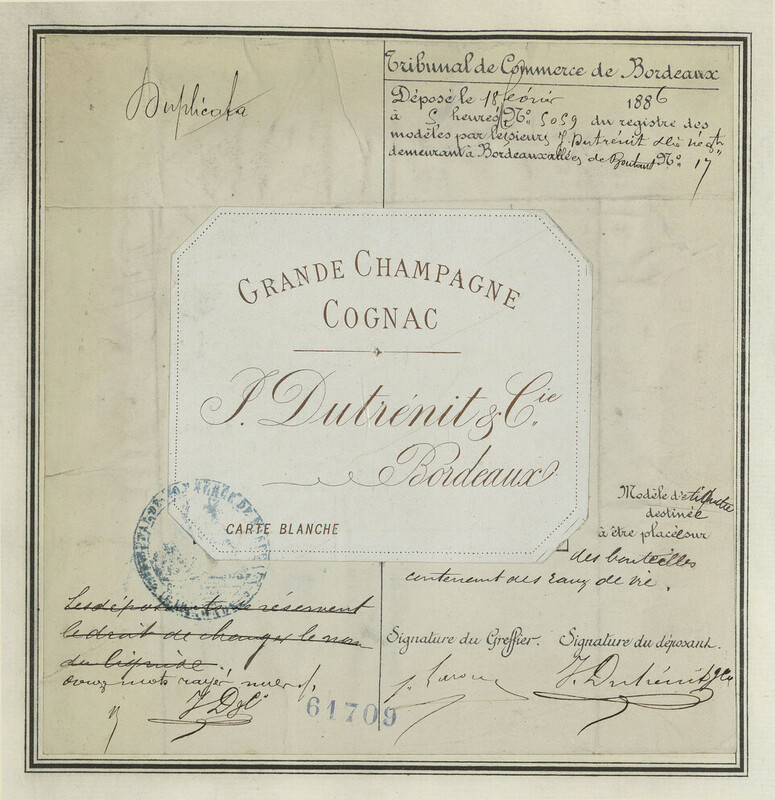 Duplicata
Tribunal de Commerce de Bordeaux
Déposé le 18 février 1886
à 5 heures N° 5059 du registre des
modèles par les sieurs J. Dutrénit & Cie négts
demeurant à Bordeaux allées de Boutaut N° 17
GRANDE CHAMPAGNE
COGNAC
J. Dutrénit & Cie.
Bordeaux
CARTE BLANCHE
Modèle d'étiquette
destinée
à être placée sur
des bouteilles
contenant des eaux de vie.
Les déposants se réservent
le droit de changer le nom
du liquide.
onze mots rayés nuls
J D & Cie
Signature du Greffier. Signature du déposant.
J. Dutrénit & Cie
61709